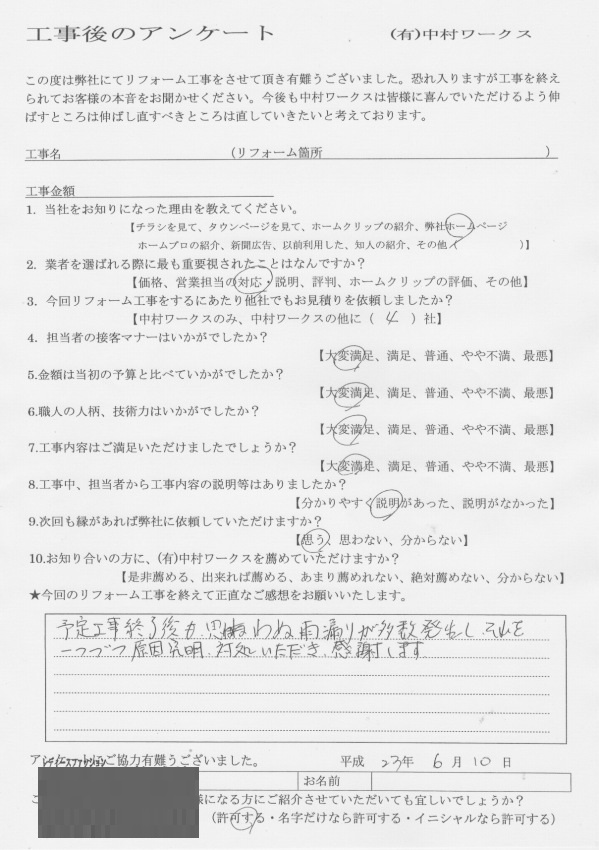 工事後のアンケート (有)中村ワークス
この度は弊社にてリフォーム工事をさせて頂き有難うございました。恐れ入りますが工事を終え
られてお客様の本音をお聞かせください。今後も中村ワークスは皆様に喜んでいただけるよう伸
ばすところは伸ばし直すべきところは直していきたいと考えております。
工事名 (リフォーム箇所 )
工事金額
1. 当社をお知りになった理由を教えてください。
【チラシを見て、タウンページを見て、ホームクリップの紹介、弊社ホームページ
ホームプロの紹介、新聞広告、以前利用した、知人の紹介、その他( )】
2. 業者を選ばれる際に最も重要視されたことはなんですか?
【価格、営業担当の対応・説明、評判、ホームクリップの評価、その他】
3. 今回リフォーム工事をするにあたり他社でもお見積りを依頼しましたか?
【中村ワークスのみ、中村ワークスの他に( 4 )社】
4. 担当者の接客マナーはいかがでしたか?
【大変満足、満足、普通、やや不満、最悪】
5.金額は当初の予算と比べていかがでしたか?
【大変満足、満足、普通、やや不満、最悪】
6.職人の人柄、技術力はいかがでしたか?
【大変満足、満足、普通、やや不満、最悪】
7.工事内容はご満足いただけましたでしょうか?
【大変満足、満足、普通、やや不満、最悪】
8.工事中、担当者から工事内容の説明等はありましたか?
【分かりやすく説明があった、説明がなかった】
9.次回も縁があれば弊社に依頼していただけますか?
【思う、思わない、分からない】
10.お知り合いの方に、(有)中村ワークスを薦めていただけますか?
【是非薦める、出来れば薦める、あまり薦めれない、絶対薦めない、分からない】
★今回のリフォーム工事を終えて正直なご感想をお願いいたします。
予定工事終了後 思わぬ雨漏りが多数発生し、それを
一つづつ原因究明、対処いただき、感謝します
アンケートにご協力有難うございました。 平成 23年 6月 10日
お名前
こ 様になる方にご紹介させていただいても宜しいでしょうか?
(許可する・名字だけなら許可する・イニシャルなら許可する)